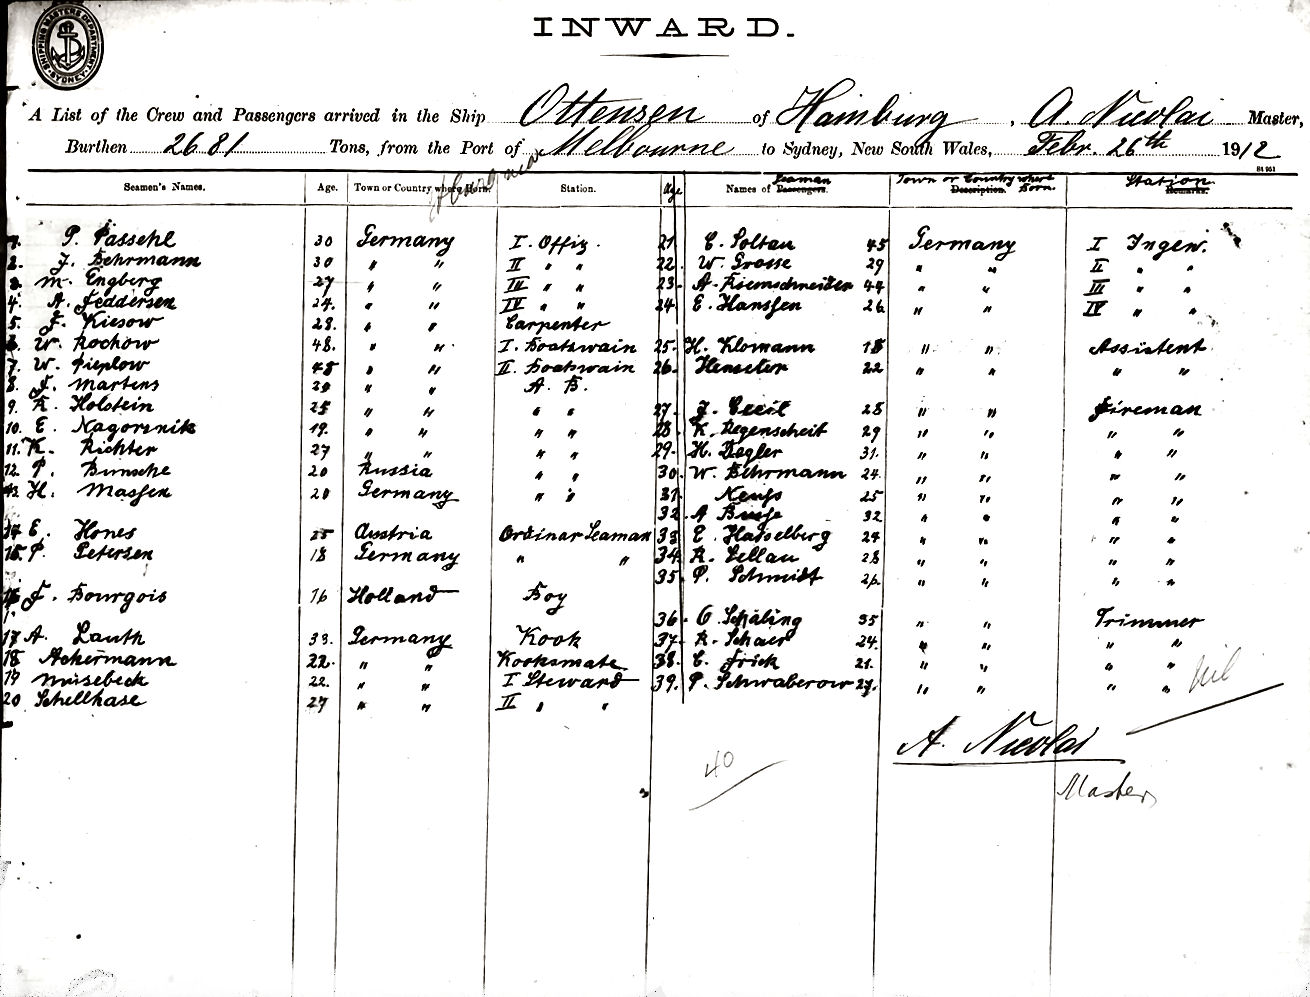 SHIPPING MASTERS DEPARTMENT SYDNEY
INWARD.
A List of the Crew and Passengers arrived in the Ship Ottensen of Hamburg, A. Nicolai Master,
Burthen 2681 Tons, from the Port of Melbourne to Sydney, New South Wales, Febr. 26th 1912
Seamen's Names. Age. Town or Country where Born. Station. Age Names of Seaman Passengers. Town or Country where Born. Description. Station. Remarks.
1. P. Passehl 30 Germany I. Offiz. 21 C. Soltau 45 Germany I Ingen.
2. J. Behrmann 30 " " II " " 22. W. Grosse 29 " " II " "
3. M. Engberg 27 " " III " " 23. A. Riemschneider 44 " " III " "
4. A. Feddersen 24. " " IV " " 24. E. Hanssen 26 " " IV " "
5. J. Kiesow 28. " " Carpenter
6. W. Rochow 48. " " I. Boatswain 25. H. Klomann 18 " " Assistent
7. W. Pieplow 48 " " II. Boatswain 26. Henseler 22 " " " "
8. J. Martens 20 " " A. B.
9. K. Holstein 25 " " " " 27. J. Cecil 28 " " Fireman
10. E. Nagorsnik 19. " " " " 28. K. Regenscheit 29 " " " "
11. K. Richter 27 " " " " 29. H. Degler 31. " " " "
12. P. Bunsche 20 Russia " " 30. W. Behrmann 24. " " " "
13. H. Massen 20 Germany " " 31. Neuss 25 " " " "
32. A. Busse 32 " " " "
14 E. Hones 25 Austria Ordinar Seaman 33 E. Hasselberg 24 " " " "
15. P. Petersen 18 Germany " " 34. R. Lellau 28 " " " "
35. P. Schmidt " " " "
16 J. Bourgois 16 Holland Boy
36. O. Schäling 35 " " Trimmer
17 A. Lauth 33. Germany Kook 37. R. Schaer 24. " " " "
18 Ackermann 22. " " Kooksmate 38. C. Frick 21. " " " "
19 Müsebeck 22. " " I Steward 39. P. Schwaberow 27. " " " "
20 Schellhase 27 " " II " "
nil
A. Nicolai
Master
40